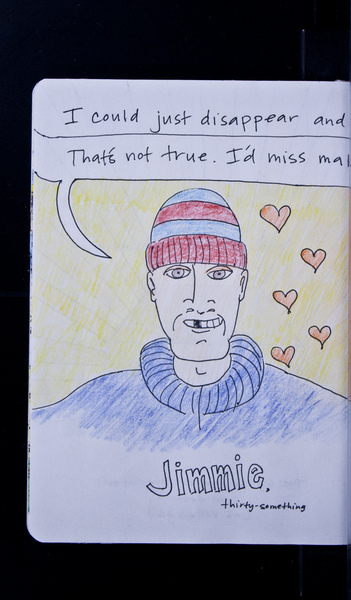 I could just disappear and
That's not true. I'd miss ma
Jimmie,
thirty-something